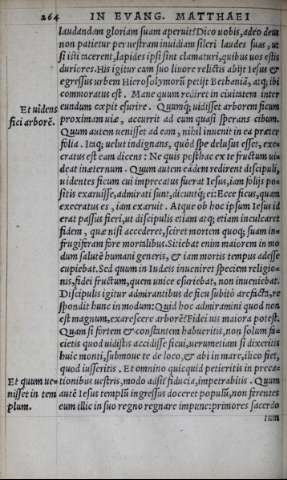 264 IN EVANG. MATTHAEI
laudandam gloriam suam aperuit? Dico uobis, adeò deus
non patietur per uestram inuidiam sileri laudes suas, ut
si isti tacerent, lapides ipsi sint clamaturi, quibus uos estis
duriores. His igitur cum suo liuore relictis abijt Iesus &
egressus urbem Hierosolymorũ petijt Bethaniã, atq; ibi
commoratus est. Mane quum rediret in ciuitatem inter
Et uidens
fici arborẽ.
eundum cœpit esurire. Quumq; uidisset arborem ficum
proximam uiæ, accurrit ad eum quasi sperans cibum.
Quum autem uenisset ad eam, nihil inuenit in ea præter
folia. Itaq; uelut indignans, quòd spe delusus esset, exe-
cratus est eam dicens: Ne quis posthac ex te fructum ui-
deat in æternum. Quum autem eadem redirent discipuli,
uidentes ficum cui imprecatus fuerat Iesus, iam folijs po-
sitis exaruisse, admirati sunt, dicuntq; ei: Ecce ficus, quam
execratus es, iam exaruit. Atque ob hoc ipsum Iesus id
erat passus fieri, ut discipulis etiam atq; etiam inculcaret
fidem, quæ nisi accederet, sciret mortem quoq; suam in-
frugiferam fore mortalibus. Sitiebat enim maiorem in mo
dum salutẽ humani generis, & iam mortis tempus adesse
cupiebat. Sed quum in Iudæis inueniret speciem religio-
nis, fidei fructum, quem unice esuriebat, non inueniebat.
Discipulis igitur admirantibus de ficu subitò arefacta, re
spondit hunc in modum: Quid hoc admiramini quod non
est magnum, exarescere arborẽ? Fidei uis maiora potest.
Quàm si fortem & constantem habueritis, non solùm fa-
cietis quod uidistis accidisse ficui, uerumetiam si dixeritis
huic monti, submoue te de loco, & abi in mare, ilico fiet,
quod iusseritis. Et omnino quicquid petieritis in preca-
Et quum ue-
nisset in tem
plum.
tionibus uestris, modo adsit fiducia, impetrabitis. Quum
autẽ Iesus templũ ingressus doceret populũ, non ferentes
eum illic in suo regno regnare impunè primores sacerdo
tum